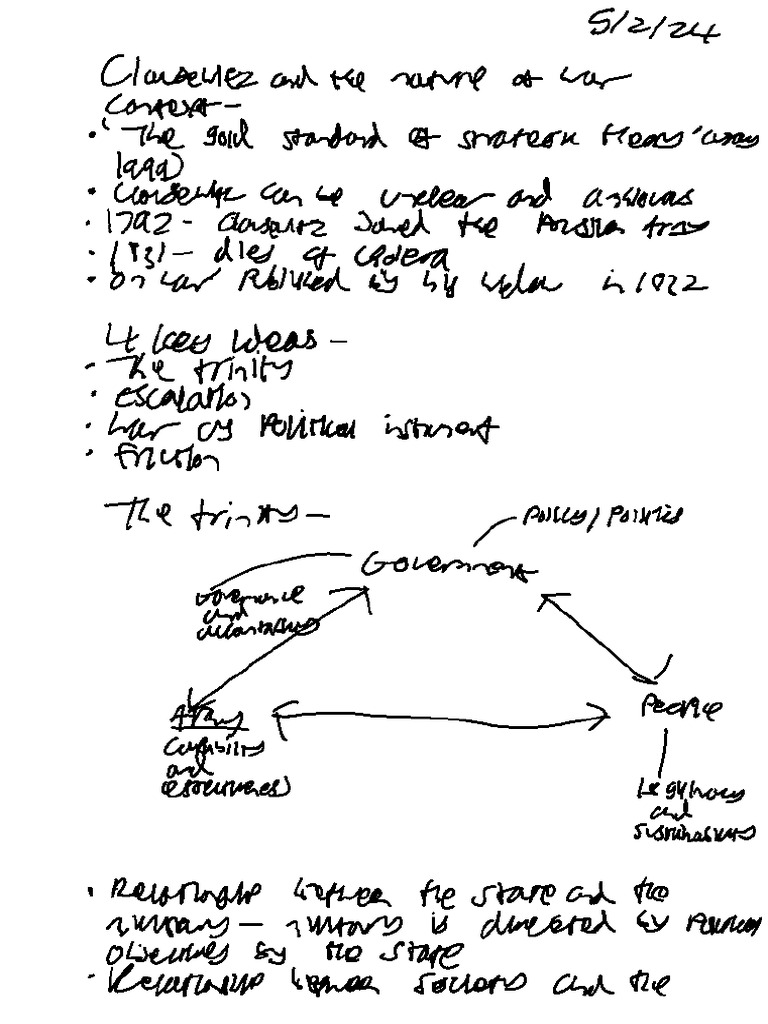 5/2/24
Clausewitz and the nature of war
Context -
• 'The gold standard of strategic theory' (Gray
1999)
• Clausewitz can be unclear and ambiguous
• 1792 - Clausewitz joined the Prussian army
• 1831 - dies of cholera
• On war published by his widow in 1832
4 key ideas -
• The trinity
• escalation
• War as political instrument
• friction
The trinity -
policy/politics
Government
Governance
and
Army
People
Capability
and
Legitimacy
and
• Relationship between the state and the
military - military is directed by political
objectives by the state
• Relationship between society and the